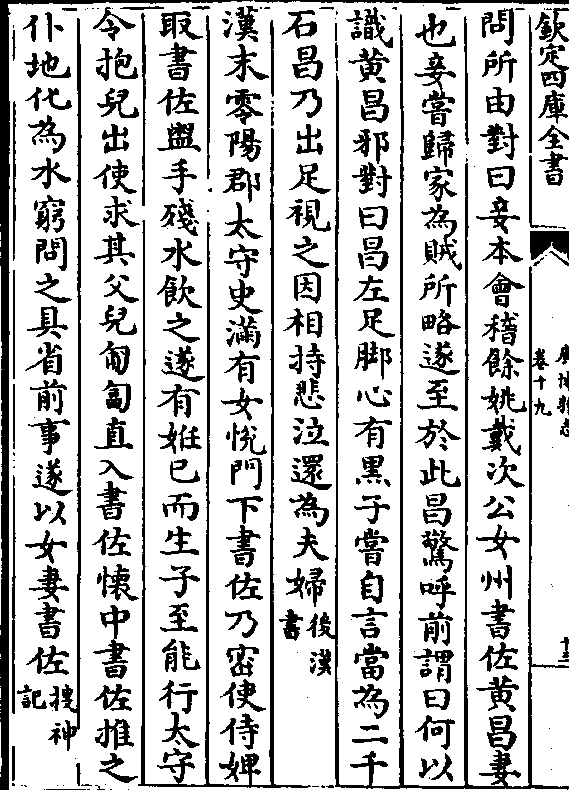 欽定四庫全書
廣博物志
卷十九
十三
問所由對曰妾本會稽餘姚戴次公女州書佐黃昌妻
也妾嘗歸家為賊所略遂至於此昌驚呼前謂曰何以
識黃昌邪對曰昌左足脚心有黑子嘗自言當為二千
石昌乃出足視之因相持悲泣還為夫婦後漢書
漢末零陽郡太守史滿有女悅門下書佐乃密使侍婢
取書佐盥手殘水飲之遂有姙已而生子至能行太守
令抱兒出使求其父兒匍匐直入書佐懷中書佐推之
仆地化為水窮問之具省前事遂以女妻書佐搜神記